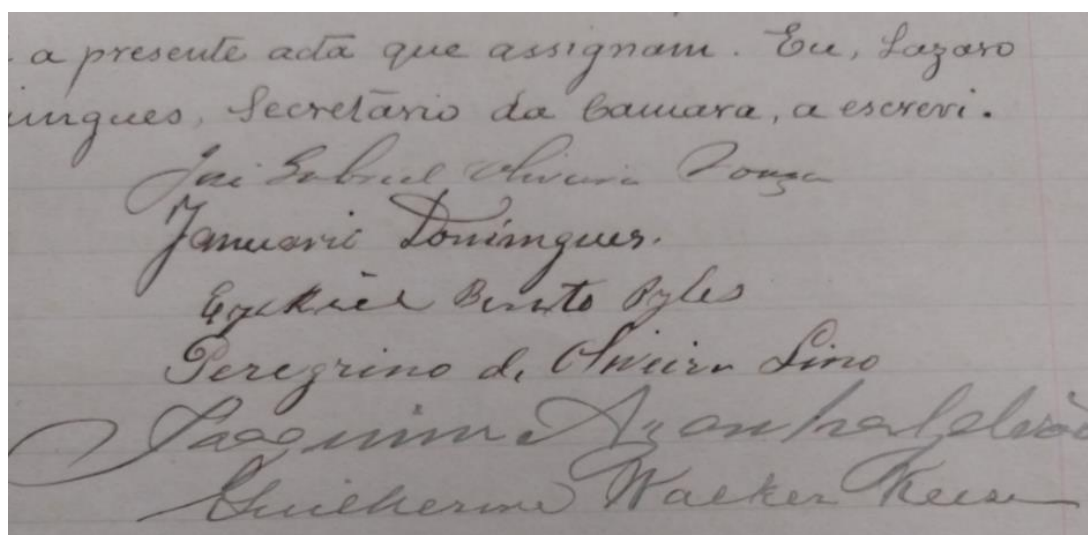 a presente acta que assignam. Eu, Lazaro
ingues, Secretario da Camara, a escrevi.
José Gabriel Oliveira Souza
Januario Domingues.
Ezekiel Bento Pyles
Peregrino de Oliveira Lino
Joaquim Azanha Galvão
Guilherme Walker